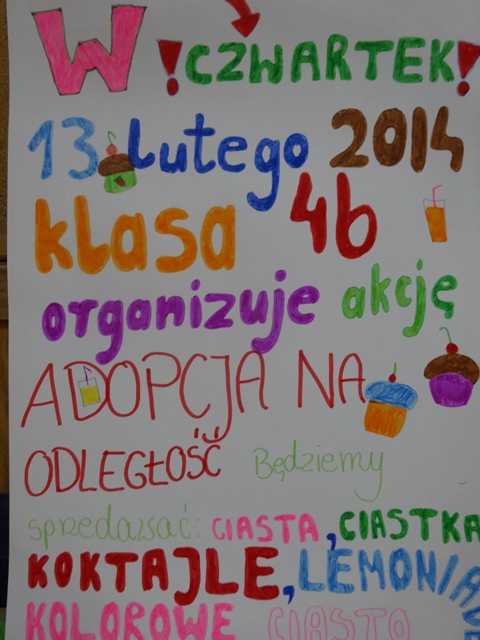 W !CZWARTEK!
13 lutego 2014
klasa 4b
organizuje akcję
ADOPCJA NA
ODLEGŁOŚĆ Będziemy
sprzedawać: CIASTA, CIASTKA
KOKTAJLE, LEMONIADE
KOLOROWE CIASTO